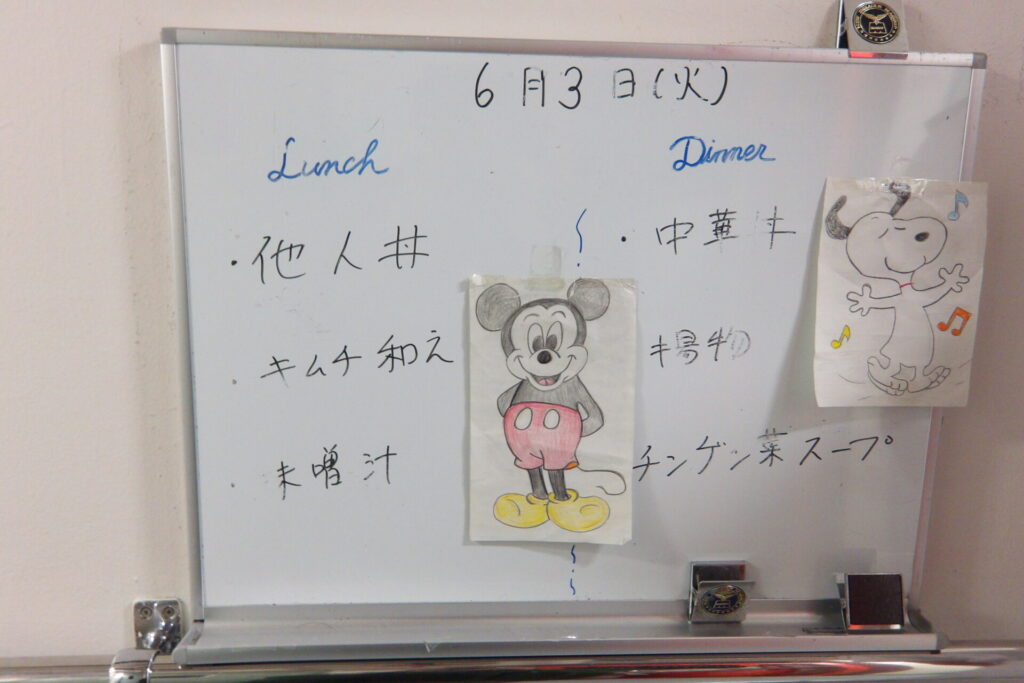 6月3日(火)
Lunch
・他人丼
・キムチ和え
・味噌汁
Dinner
・中華丼
揚物
チンゲン菜スープ